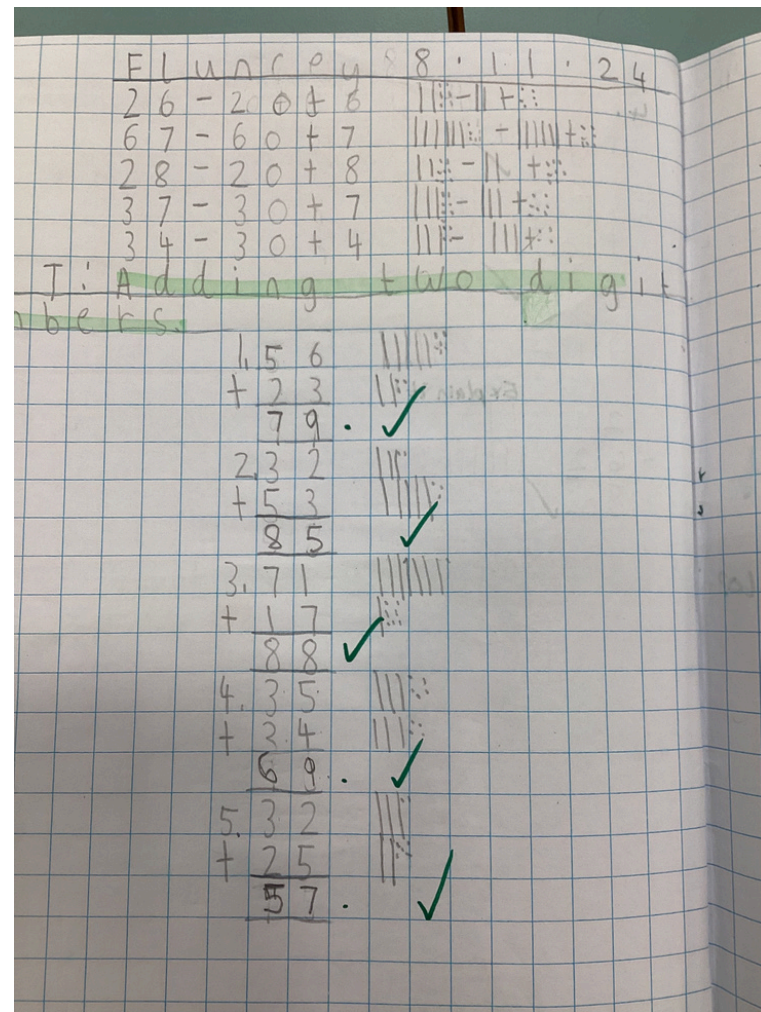 Fluncey 8.11.24
26-20+6
67-60+7
28-20+8
37-30+7
34-30+4
I: Adding two digit
nbers.
1. 56
+ 23
79.
2. 32
+ 53
85
3. 71
+ 17
88
4. 35
+ 34
69.
5. 32
+ 25
57.